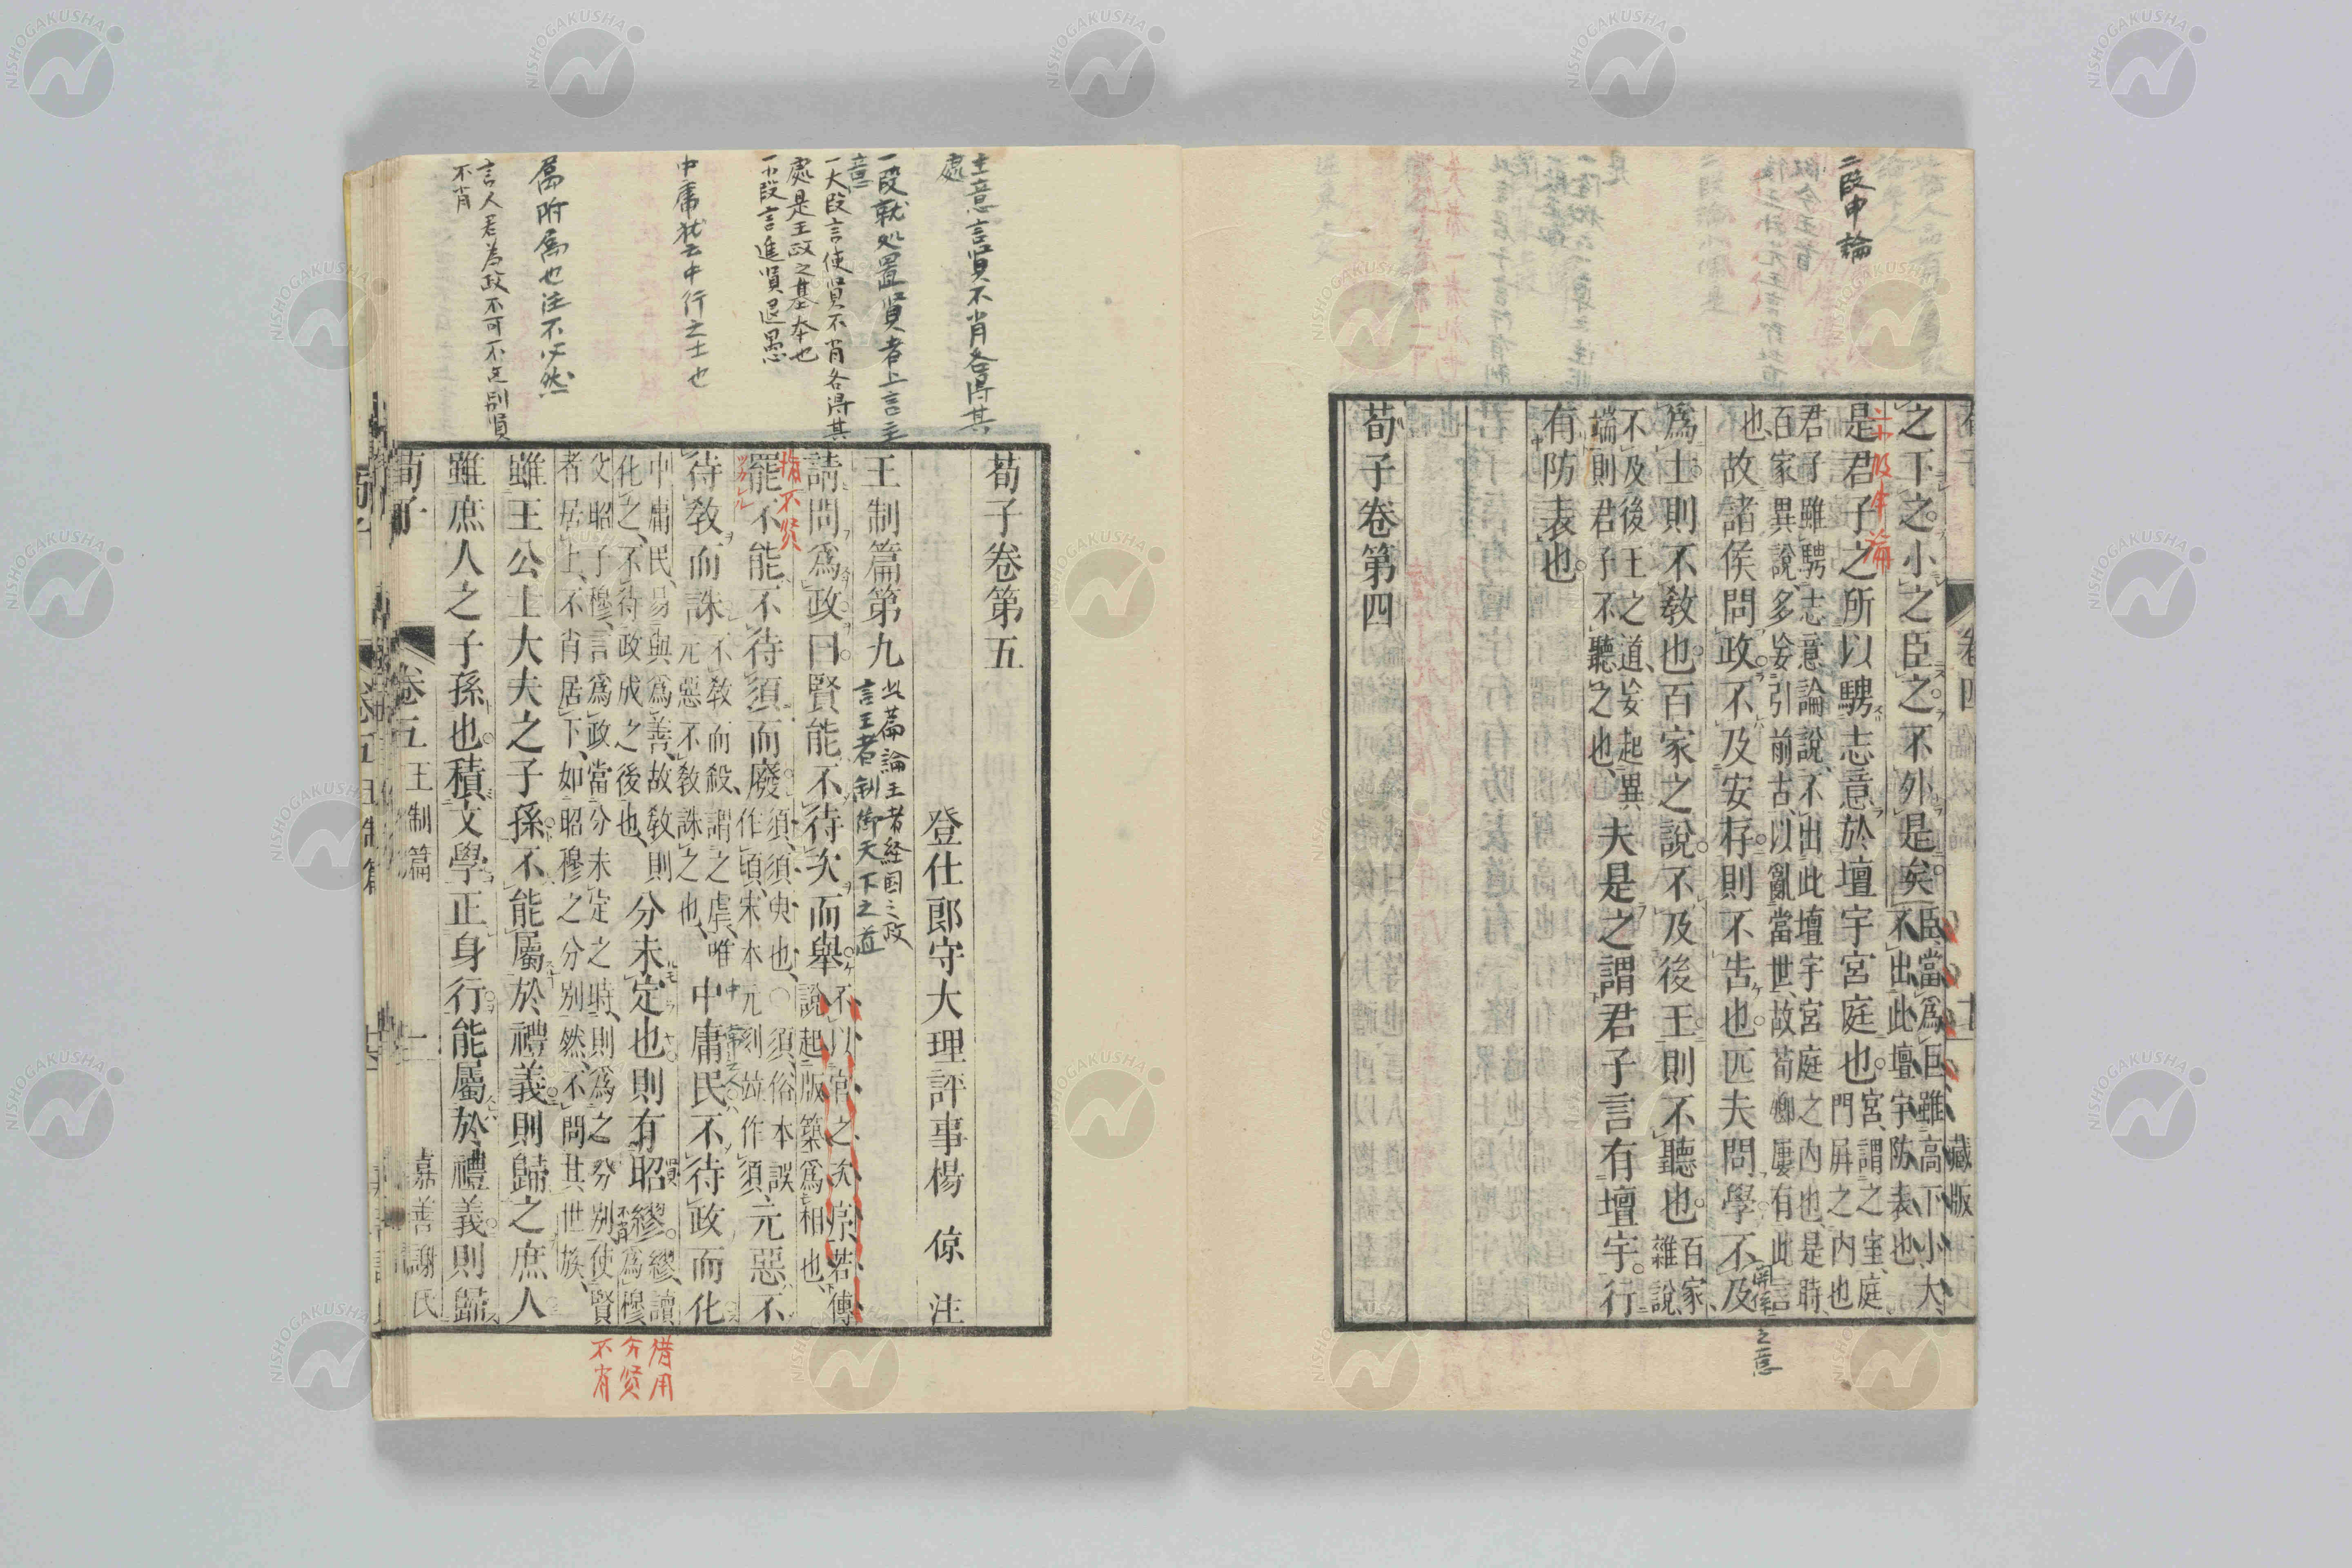 二段申論
之下之小之臣之不外是矣
臣當爲臣雖高下小大
不出此壇宇防表也
是君子之所以騁志意於壇宇宮庭也
宮謂之室庭
門屏之內也
君子雖騁志意論說不出此壇宇宮庭之內也是時
百家異說多妄引前古以亂當世故荀卿屢有此言
也
故諸侯問政不及安存則不告也匹夫問學不及
爲士則不教也百家之說不及後王則不聽也
百家
雜說
不及後王之道妄起異
端則君子不聽之也
夫是之謂君子言有壇宇行
有防表也
荀子卷第四
藏版
主意言賢不肖各得其
處
一段就処置賢者上言主
意
一大段言使賢不肖各得其
處是王政之基本也
一小段言進賢退愚
中庸犹云中行之士也
屬附屬也注不必然
言人君為政不可不先別賢
不肖
荀子卷第五
登仕郎守大理評事楊 倞 注
王制篇第九
此篇論王者経国之政
言王者制御天下之道
請問爲政曰賢能不待次而舉
不以官之次序若傅
說起版築爲相也
指不賢
罷不能不待須而廢
須須臾也○須俗本誤
作頃宋本元刻竝作須
元惡不
待教而誅
不教而殺謂之虐唯
元惡不教誅之也
中庸民不待政而化
中庸民易與爲善故教則
化之不待政成之後也
分未定也則有昭繆
繆讀
爲穆
父昭子穆言爲政當分未定之時則爲之分別使賢
者居上不肖居下如昭穆之分別然不問其世族
借用
分賢
不肖
雖王公士大夫之子孫不能屬於禮義則歸之庶人
雖庶人之子孫也積文學正身行能屬於禮義則歸
荀子
卷五
王制篇
一
嘉善謝氏